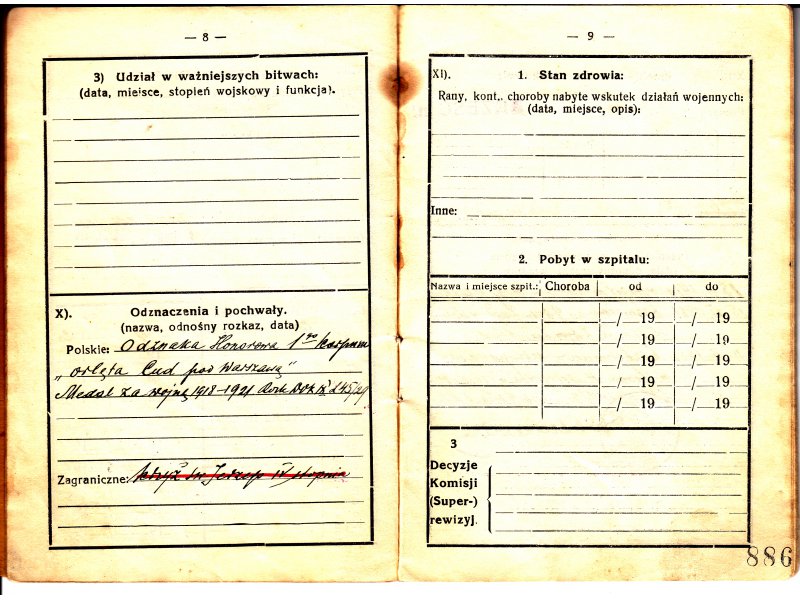 — 8 —
3) Udział w ważniejszych bitwach:
(data, miejsce, stopień wojskowy i funkcja).
X). Odznaczenia i pochwały.
(nazwa, odnośny rozkaz, data)
Polskie: Odznaka Honorowa 1go Korpusu
„orlęta Cud pod Warszawą"
Medal za wojnę 1918-1921 Rozk. DOK IX
Zagraniczne: krzyż św. Jerzego IV stopnia
— 9 —
XI). 1. Stan zdrowia:
Rany, kont., choroby nabyte wskutek działań wojennych:
(data, miejsce, opis):
Inne:
2. Pobyt w szpitalu:
Nazwa i miejsce szpit.: Choroba od do
/ 19 / 19
/ 19 / 19
/ 19 / 19
/ 19 / 19
/ 19 / 19
3
Decyzje
Komisji
(Super-)
rewizyj.
886